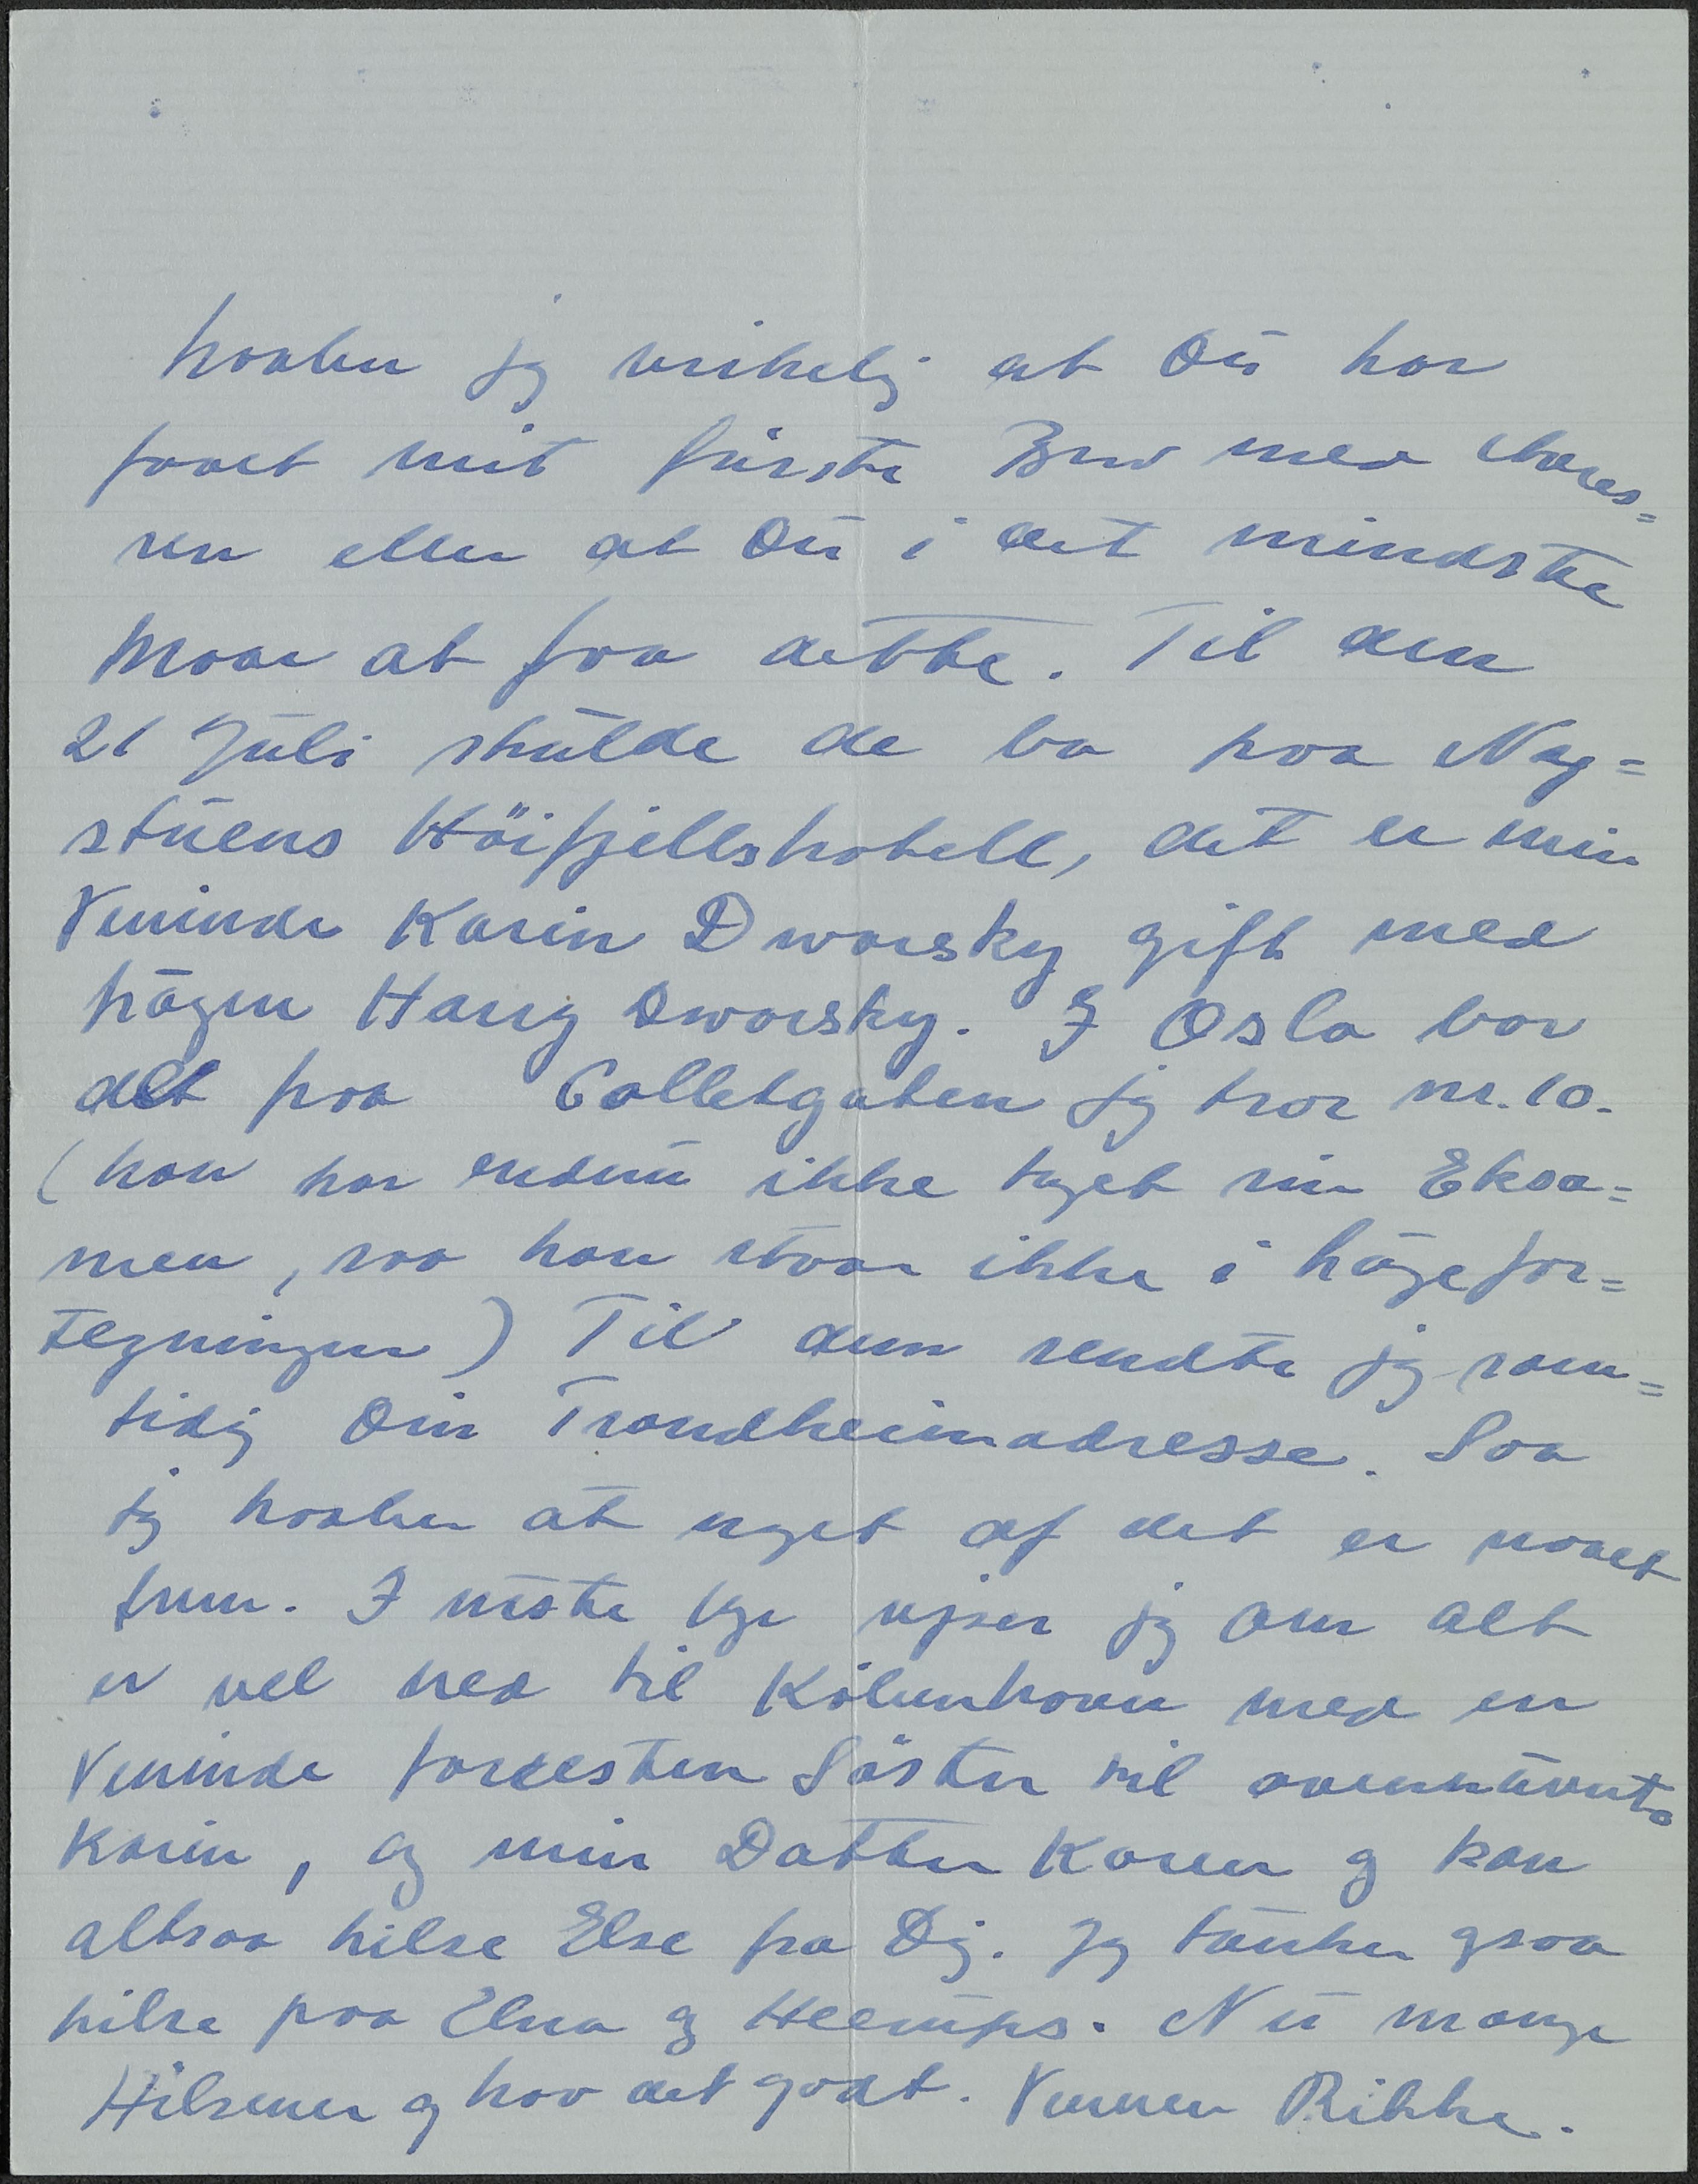 haaber jeg virkelig at Du har
faaet mit første Brev med Adres=
sen eller at Du i det mindste
maa at faa dette. Til den
21 Juli skulde de bo paa Nag=
stuens Höifjellshotell, det er min
Veninde Karin Dworsky gift med
högen Harry Dworsky. I Oslo bor
det paa Colletgaten jeg tror nr. 10.
(han har endnu ikke taget sin Eksa=
men, saa han staar ikke i högefor=
tegningen) Til dem sendte jeg sam=
tidig Din Trondheimadresse. Saa
jeg haaber at noget af det er naaet
frem. I näste Uge rejser jeg om alt
er vel ned til Köbenhavn med en
Veninde forresten Söster til ovennävnte
Karin, og min Datter Karen og kan
altsaa hilse Else fra Dig. Jeg tänker ogsaa
hilse paa Elna og. Nu mange
Hilsener og hav det godt. Vennen Rikke.